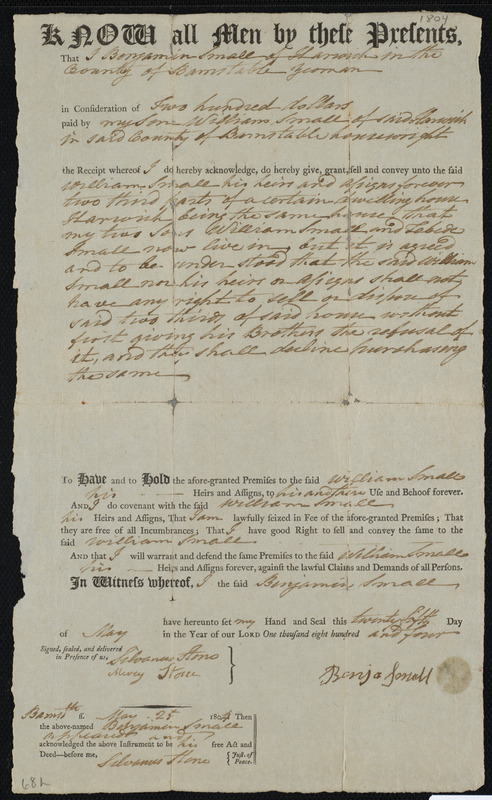 1804
KNOW all Men by these Presents,
That I Benjamin Small of Harwich in the
County of Barnstable Yeoman
in Consideration of Two hundred dollars
paid by my son William Small of said Harwich
in said County of Barnstable housewright
the Receipt whereof I do hereby acknowledge, do hereby give, grant, sell and convey unto the said
William Small his heirs and assigns forever
two third parts of a certain dwelling house
Harwich being the same house that
my two sons William Small and
Small now live in, but it is agreed
and to be under stood that the said William
Small nor his heirs or assigns shall not
have any right to sell or dispose of
said two thirds of said house without
first giving his Brothers the refusal of
it, and they shall decline purchasing
the same
To Have and to Hold the afore-granted Premises to the said William Small
his Heirs and Assigns, to his and there Use and Behoof forever.
AND I do covenant with the said William Small
his Heirs and Assigns, That I am lawfully seized in Fee of the afore-granted Premises; That
they are free of all Incumbrances; That I have good Right to sell and convey the same to the
said William Small
And that I will warrant and defend the same Premises to the said William Small
his Heirs and Assigns forever, against the lawful Claims and Demands of all Persons.
In Witness whereof, I the said Benjamin Small
have hereunto set my Hand and Seal this twenty fifth Day
of May in the Year of our LORD One thousand eight hundred and four
Signed, sealed, and delivered
in Presence of us,
Silvanus Stone
Stone
Benja Smell
Barnsth ss. May 25 1804 Then
the above-named Benjamin Small
appeared and
acknowledged the above Instrument to be his free Act and
Deed—before me, Silvanus Stone { Just. of Peace.
68 h